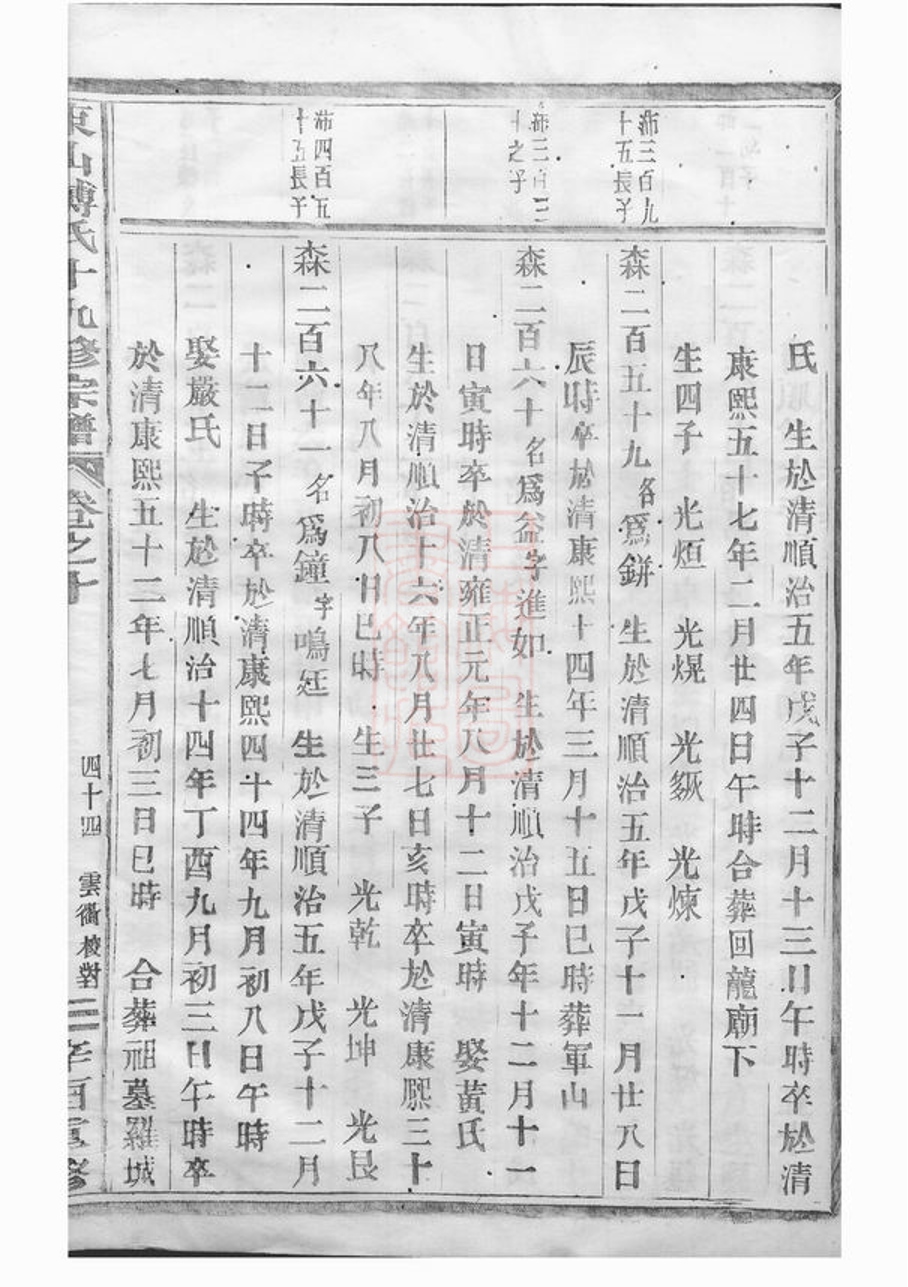 氏 生於清順治五年戊子十二月十三日午時卒於清
康熙五十七年二月廿四日午時合葬回龍廟下
生四子 光烜 光熀 光籔 光煉
沛三百九
十五長子
森二百五十九名爲鉼 生於清順治五年戊子十一月廿八日
辰時卒於清康熙十四年三月十五日巳時葬軍山
沛三百三
十之子
森二百六十名爲益字進如 生於清順治戊子年十二月十一
日寅時卒於清雍正元年八月十二日寅時 娶黃氏
生於清順治十六年八月廿七日亥時卒於清康熙三十
八年八月初八日巳時 生三子 光乾 光坤 光艮
沛四百五
十五長子
森二百六十一名爲鐘字鳴廷 生於清順治五年戊子十二月
十二日子時卒於清康熙四十四年九月初八日午時
娶嚴氏 生於清順治十四年丁酉九月初三日午時卒
於清康熙五十二年七月初三日巳時 合葬祖墓羅城
東山傅氏十九修宗譜 卷之十 四十四 雲衢校對 辛酉重修